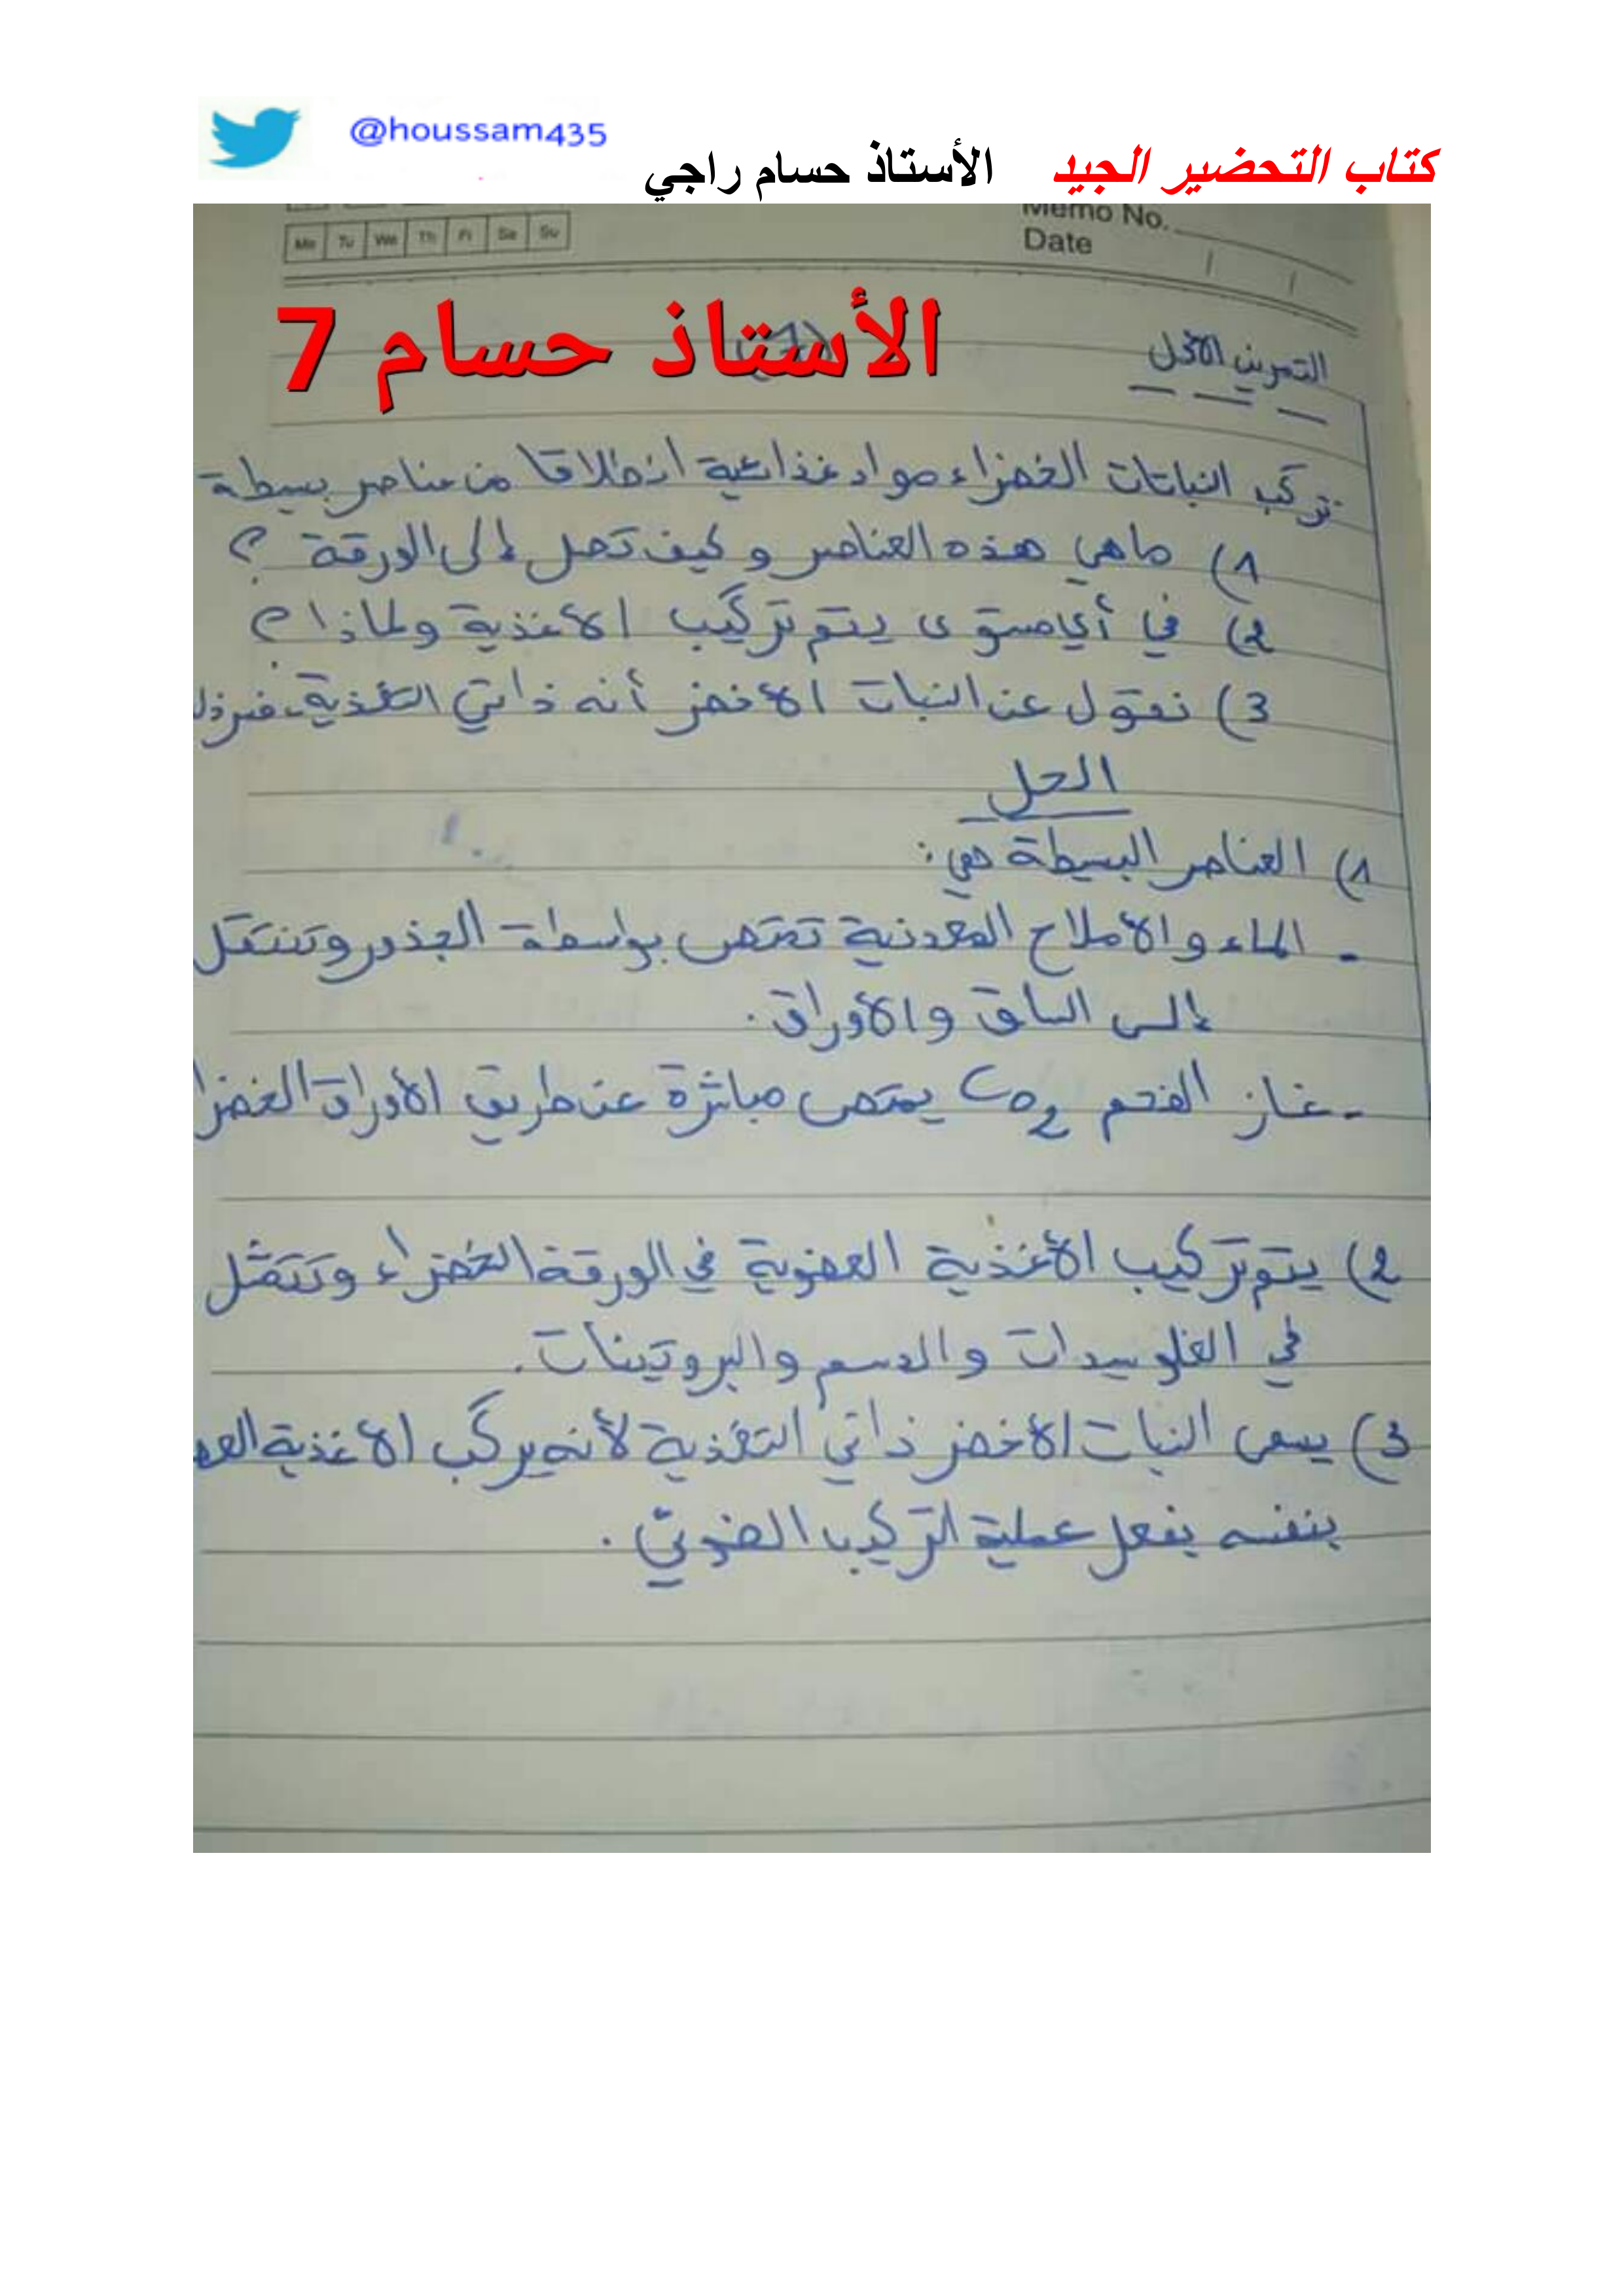 @houssam435
كتاب التحضير الجيد الأستاذ حسام راجي
Memo No.
Mo Tu We Th Fr Sa Su
Date
الأستاذ حسام 7
التمرين الأول
تركب النباتات الخضراء مواد غذائية انطلاقا من عناصر بسيطة
1) ماهي هذه العناصر و كيف تصل إلى الورقة ؟
2) في أي مستوى يتم تركيب الأغذية ولماذا ؟
3) نقول عن النبات الأخضر أنه ذاتي التغذية. فسر
الحل
1) العناصر البسيطة هي:
- الماء والأملاح المعدنية تمتص بواسطة الجذور وتنتقل
إلى الساق والأوراق.
- غاز الفحم CO2 يمتص مباشرة عن طريق الأوراق
2) يتم تركيب الأغذية العضوية في الورقة الخضراء وتتمثل
في الغلوسيدات والدسم والبروتينات.
3) يسمى النبات الأخضر ذاتي التغذية لأنه يركب الأغذية
بنفسه بفعل عملية التركيب الضوئي.